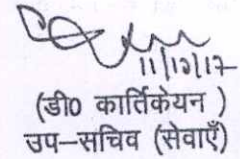 11/12/17
(डी० कार्तिकेयन )
उप–सचिव (सेवाएँ)